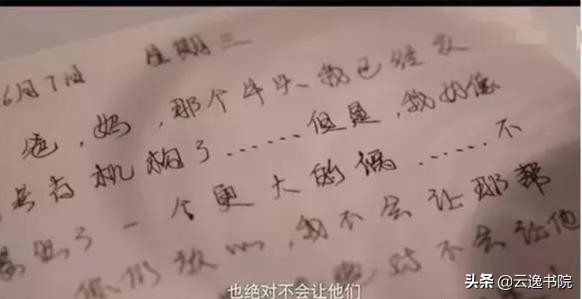 6月7日 星期三
爸,妈,那个牛头我已经交
机构了……但是,我好像
了一个更大的祸……不
你们放心,我不会让那帮
绝对不会让他
也绝对不会让他们
头条 @云逸书院